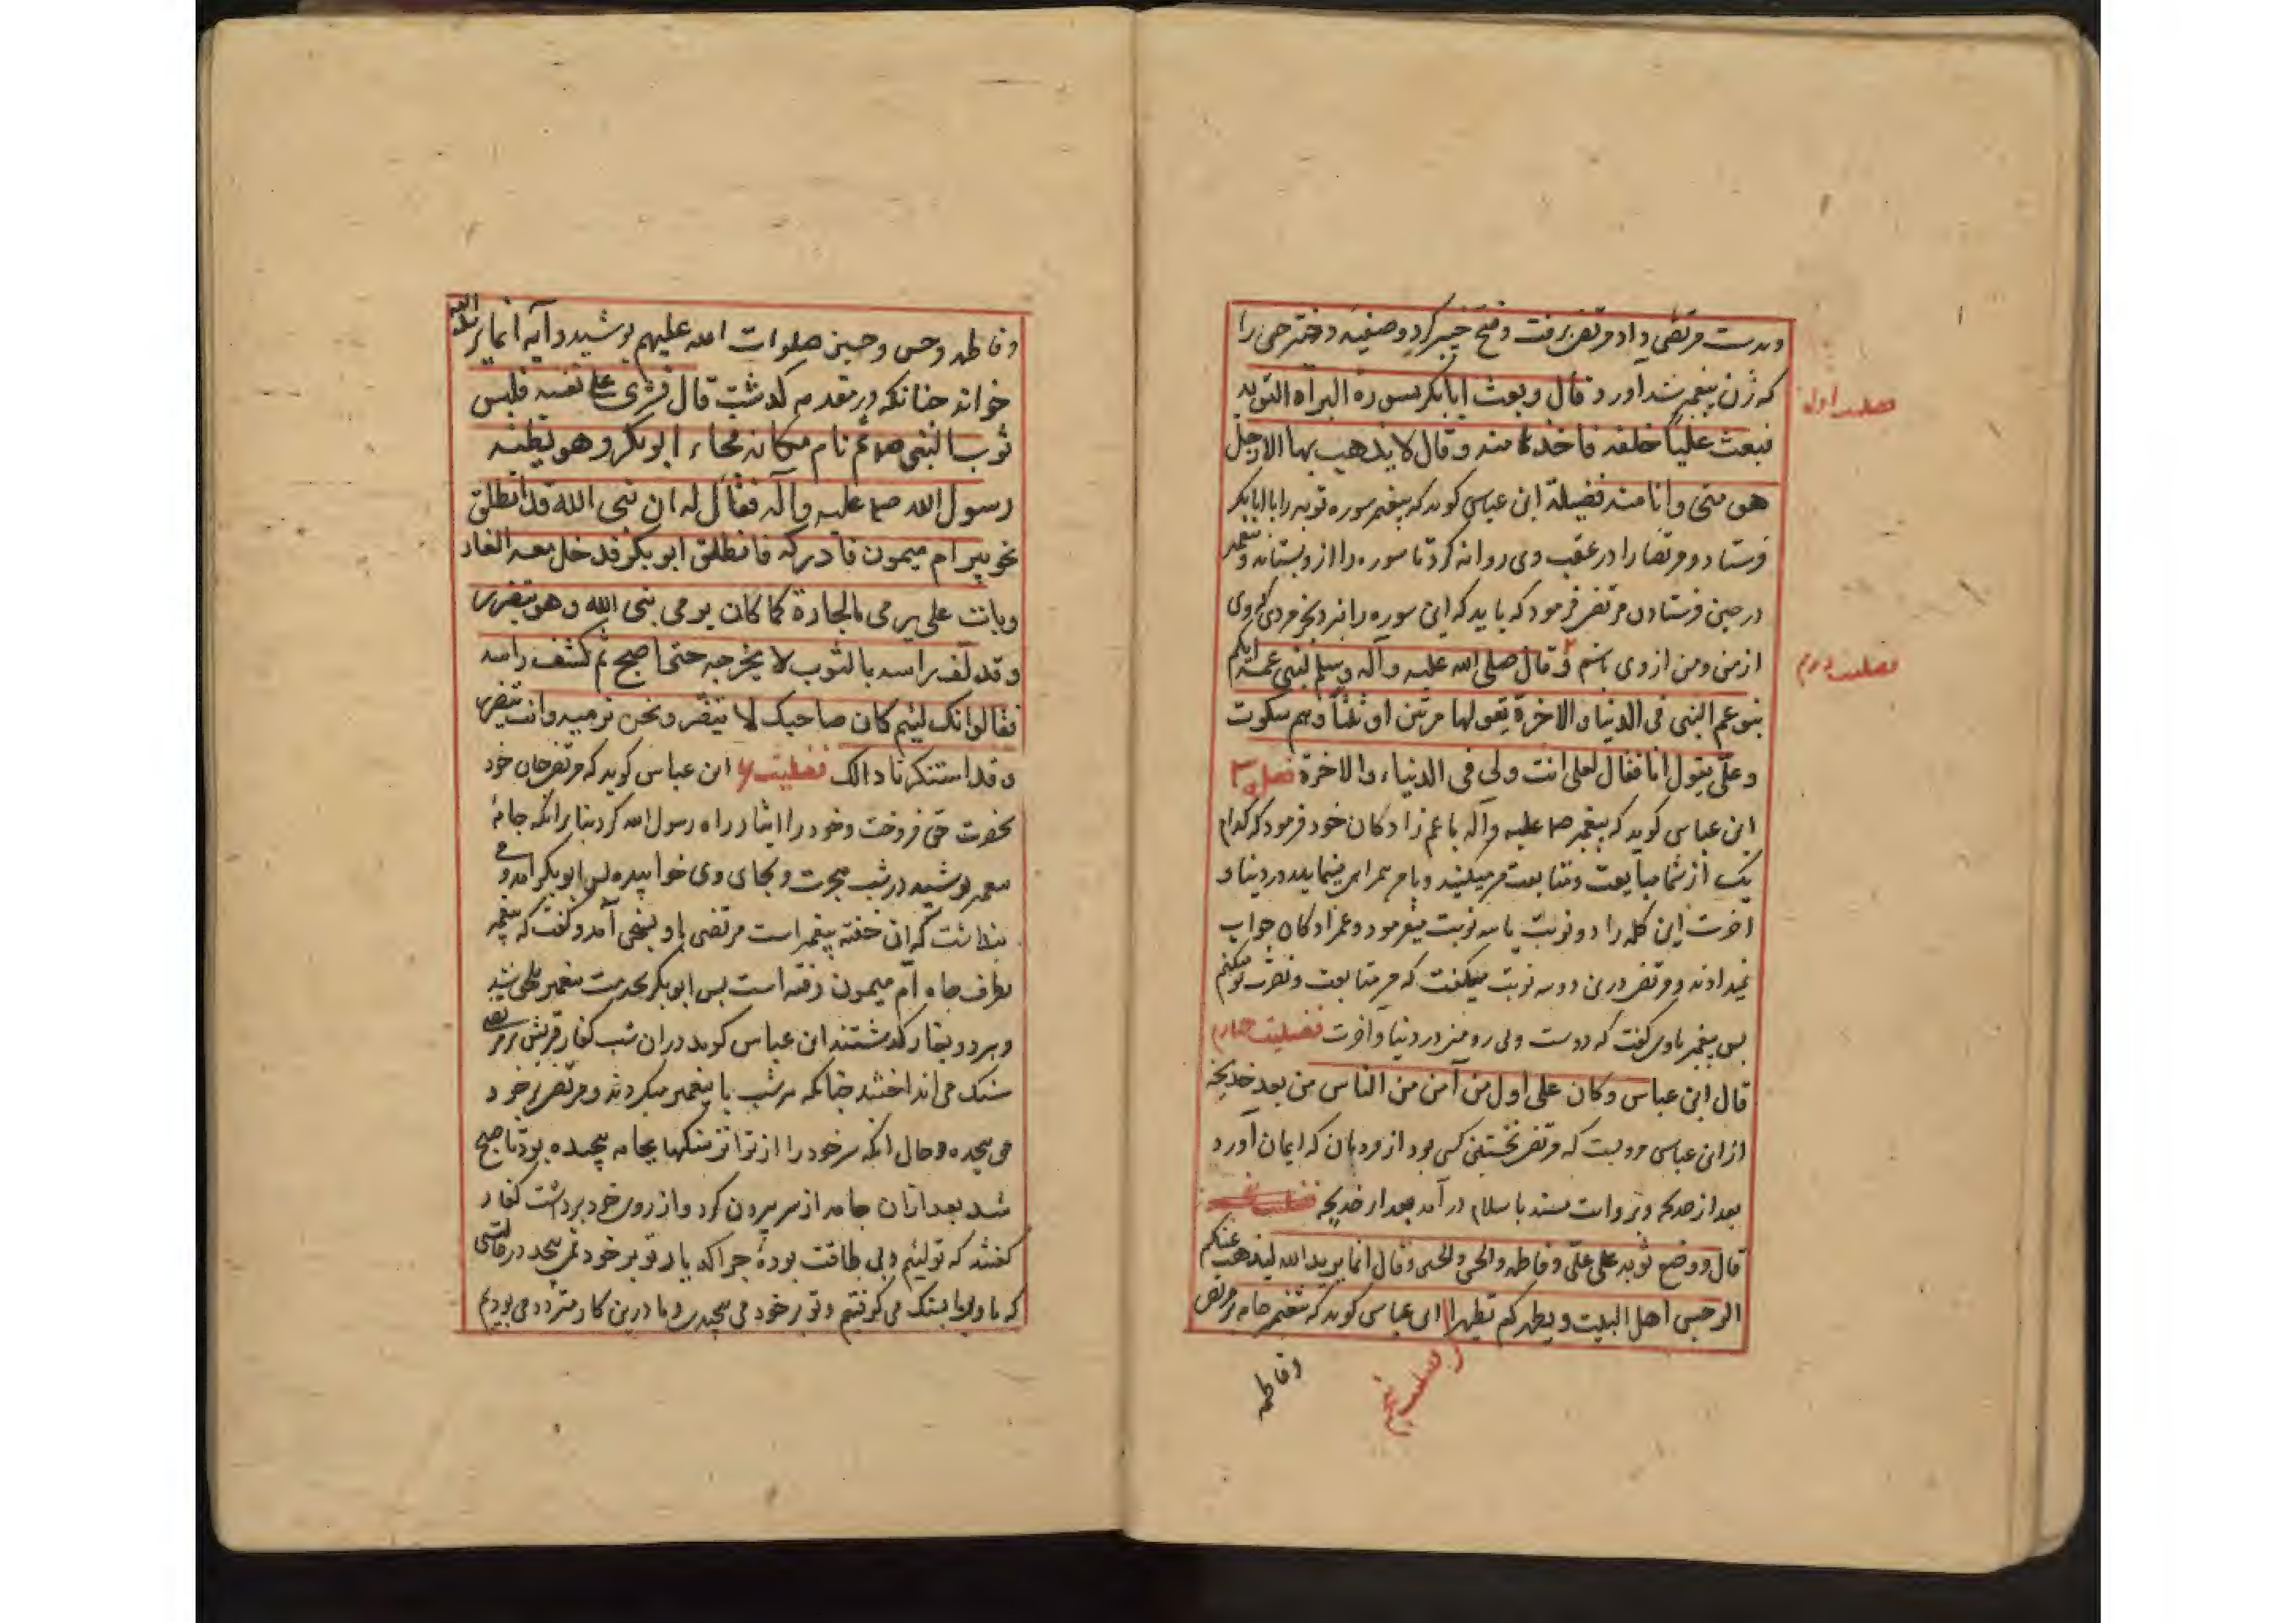 وبدست مرتضی داد و مرتضی برفت و فتح خیبر کرد و صفیه دختر حی را
که زن پیغمبر شد آورد و قال و بعث ابابکر بسورة البرآه التوبه
فضیلت اول
فبعث علیًا خلفه فاخذها منه و قال لا یذهب بها الا رجل
هو منی و انا منه فضیلة ابن عباس کوید که پیغمبر سوره توبه را با ابابکر
فرستاد و مرتضا را در عقب وی روانه کرد تا سوره را از و بستاند و پیغمبر
در حین فرستادن مرتضی فرمود که باید که این سوره را نبرد بجز مردی که وی
از من و من از وی باشم ٢ و قال صلی الله علیه و آله وسلم لبنی عمه ایکم
فضیلت دوم
بنو عم النبی فی الدنیا و الاخرة یقولها مرتین او ثلثًا و هم سکوت
و علی یقول انا فقال لعلی انت ولی فی الدنیاء و الاخرة فضل ٣
ابن عباس کوید که پیغمبر صه علیه و آله با عم زادکان خود فرمود که کدام
یک از شما مبایعت و متابعت من میکنید و با من همراهی مینماید در دنیا و
اخرت این کلمه را دو نوبت یا سه نوبت میفرمود و عمزادکان جواب
نمیدادند و مرتضی درین دو سه نوبت میکفت که من متابعت و نصرت تو میکنم
بس پیغمبر باوی کفت که دوست و لی رو منی در دنیا و آخرت فضیلت چهارم
قال ابن عباس و کان علی اول من آمن من الناس من بعد خدیجة
از ابن عباس مرویست که مرتضی نخستین کسی بود از مردمان که ایمان آورد
بعد از خدیجه و بروایت مسند باسلام در آمد بعد از خدیجه
قال و وضع ثوبه علی علیّ و فاطمه و الحسن و الحسین و قال انما یرید الله لیذهب عنکم
الرجس اهل البیت و یطهرکم تطهیرا ابن عباس کوید که پیغمبر جامه بر مرتضی
فضیلت پنجم
وفاطمه
وفاطمه و حسن و حسین صلوات الله علیهم پوشید و آیه انما یرید الله
خواند چنانکه در مقدمه کذشت قال و شری علی نفسه فلبس
ثوب النبی صه ثم نام مکانه فجاء ابو بکر و هو یظنه
رسول الله صه علیه و آله فقال له ان نبی الله قد انطلق
نحو بیر ام میمون فادرکه فانطلق ابو بکر فدخل معه الغار
وبات علی یرمی بالحجارة کما کان یرمی نبی الله و هو یتضرر
و قد لف راسه بالثوب لا یخرجه حتی اصبح ثم کشف راسه
فقالوا انک لئیم کان صاحبک لا یتضرر و نحن نرمیه و انت یتضرر
و قد استنکرنا ذالک فضیلت ۶ ابن عباس کوید که مرتضی جان خود
بحضرت حق فروخت و خود را ایثار راه رسول الله کرد بنا برانکه جامهٔ
پیغمبر پوشید در شب هجرت و بجای وی خوابیده بس ابوبکر آمد و
پنداشت که آن خفته پیغمبر است مرتضی باو بسخن آمد و کفت که پیغمبر
بطرف چاه ام میمون رفته است بس ابوبکر بخدمت پیغمبر ملحق شد
و هر دو بغار کذشتند ابن عباس کوید در ان شب کفار قریش بر مرتضی
سنک می انداختند چنانکه هر شب با پیغمبر میکردند و مرتضی بر خود
می پیچیده و حال انکه سر خود را از تواتر سنکها بجامه پیچیده بود تا صبح
شد بعد از ان جامه از سر بیرون کرد و از روی خود برداشت کفار
کفتند که تو لئیم و بی طاقت بودهٔ چرا که یار تو بر خود نمی پیچید در حالتی
که ما ویرا بسنک می کوفتیم و تو بر خود می پیچیدی و ما درین کار متردد می بودیم